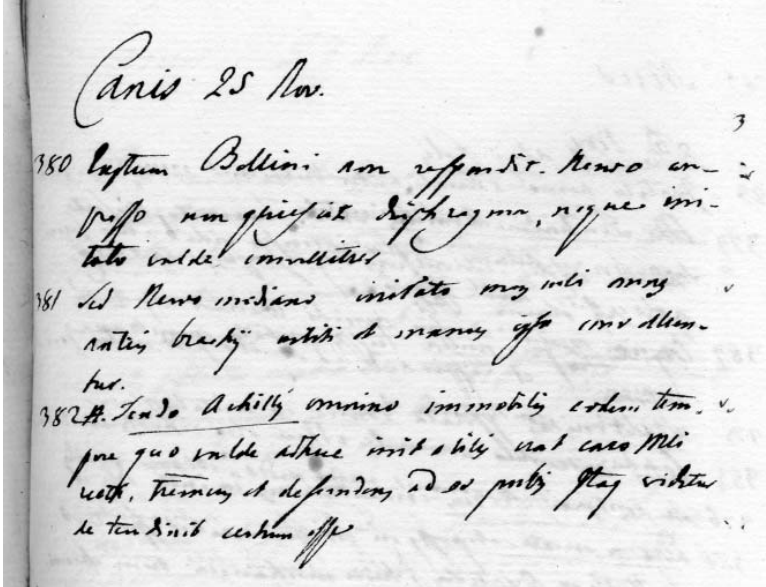 Canis 25 Nov.
3
380 Bellini non respondit. Nervo com-
presso non quiescit diaphragma, neque irri-
tato valde convellitur
381 Sed Nervo mediano irritato musculi omnes
antici brachii et manus ipsa convellun-
tur.
382 #. Tendo Achillis omnino immobilis eodem tem-
pore quo valde adhuc irritabilis erat caro Mus
et descendens ad os pubis videtur
de tendinib certum esse